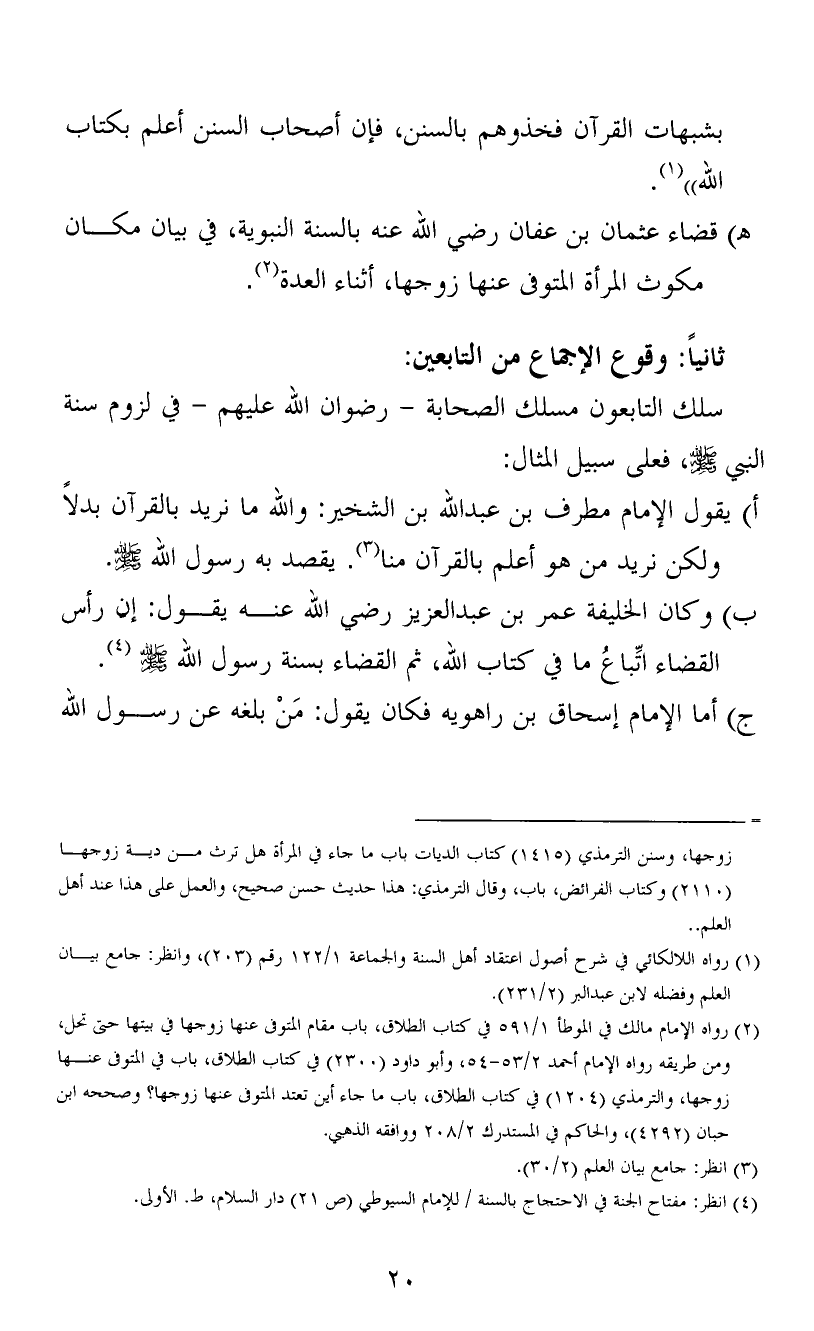 بشبهات القرآن فخذوهم بالسنن، فإن أصحاب السنن أعلم بكتاب
الله))(١).
هـ) قضاء عثمان بن عفان رضي الله عنه بالسنة النبوية، في بيان مكـــان
مكوث المرأة المتوفى عنها زوجها، أثناء العدة(٢).
ثانياً: وقوع الإجماع من التابعين:
سلك التابعون مسلك الصحابة - رضوان الله عليهم - في لزوم سنة
النبي ﷺ، فعلى سبيل المثال:
أ) يقول الإمام مطرف بن عبدالله بن الشخير: والله ما نريد بالقرآن بدلاً
ولكن نريد من هو أعلم بالقرآن منا(٣). يقصد به رسول الله ﷺ.
ب) وكان الخليفة عمر بن عبدالعزيز رضي الله عنـــه يقـــول: إن رأس
القضاء اتِّباعُ ما في كتاب الله، ثم القضاء بسنة رسول الله ﷺ (٤).
ج) أما الإمام إسحاق بن راهويه فكان يقول: مَنْ بلغه عن رســـول الله
=
زوجها، وسنن الترمذي (١٤١٥) كتاب الديات باب ما جاء في المرأة هل ترث مـــن ديـــة زوجهـــا
(٢١١٠) وكتاب الفرائض، باب، وقال الترمذي: هذا حديث حسن صحيح، والعمل على هذا عند أهل
العلم..
(١) رواه اللالكائي في شرح أصول اعتقاد أهل السنة والجماعة ١٢٢/١ رقم (٢٠٣)، وانظر: جامع بيـــان
العلم وفضله لابن عبدالبر (٢٣١/٢).
(٢) رواه الإمام مالك في الموطأ ٥٩١/١ في كتاب الطلاق، باب مقام المتوفى عنها زوجها في بيتها حتى تحل،
ومن طريقه رواه الإمام أحمد ٥٣/٢-٥٤، وأبو داود (٢٣٠٠) في كتاب الطلاق، باب في المتوفى عنـــها
زوجها، والترمذي (١٢٠٤) في كتاب الطلاق، باب ما جاء أين تعتد المتوفى عنها زوجها؟ وصححه ابن
حبان (٤٢٩٢)، والحاكم في المستدرك ٢٠٨/٢ ووافقه الذهبي.
(٣) انظر: جامع بيان العلم (٣٠/٢).
(٤) انظر: مفتاح الجنة في الاحتجاج بالسنة / للإمام السيوطي (ص ٢١) دار السلام، ط. الأولى.
٢٠